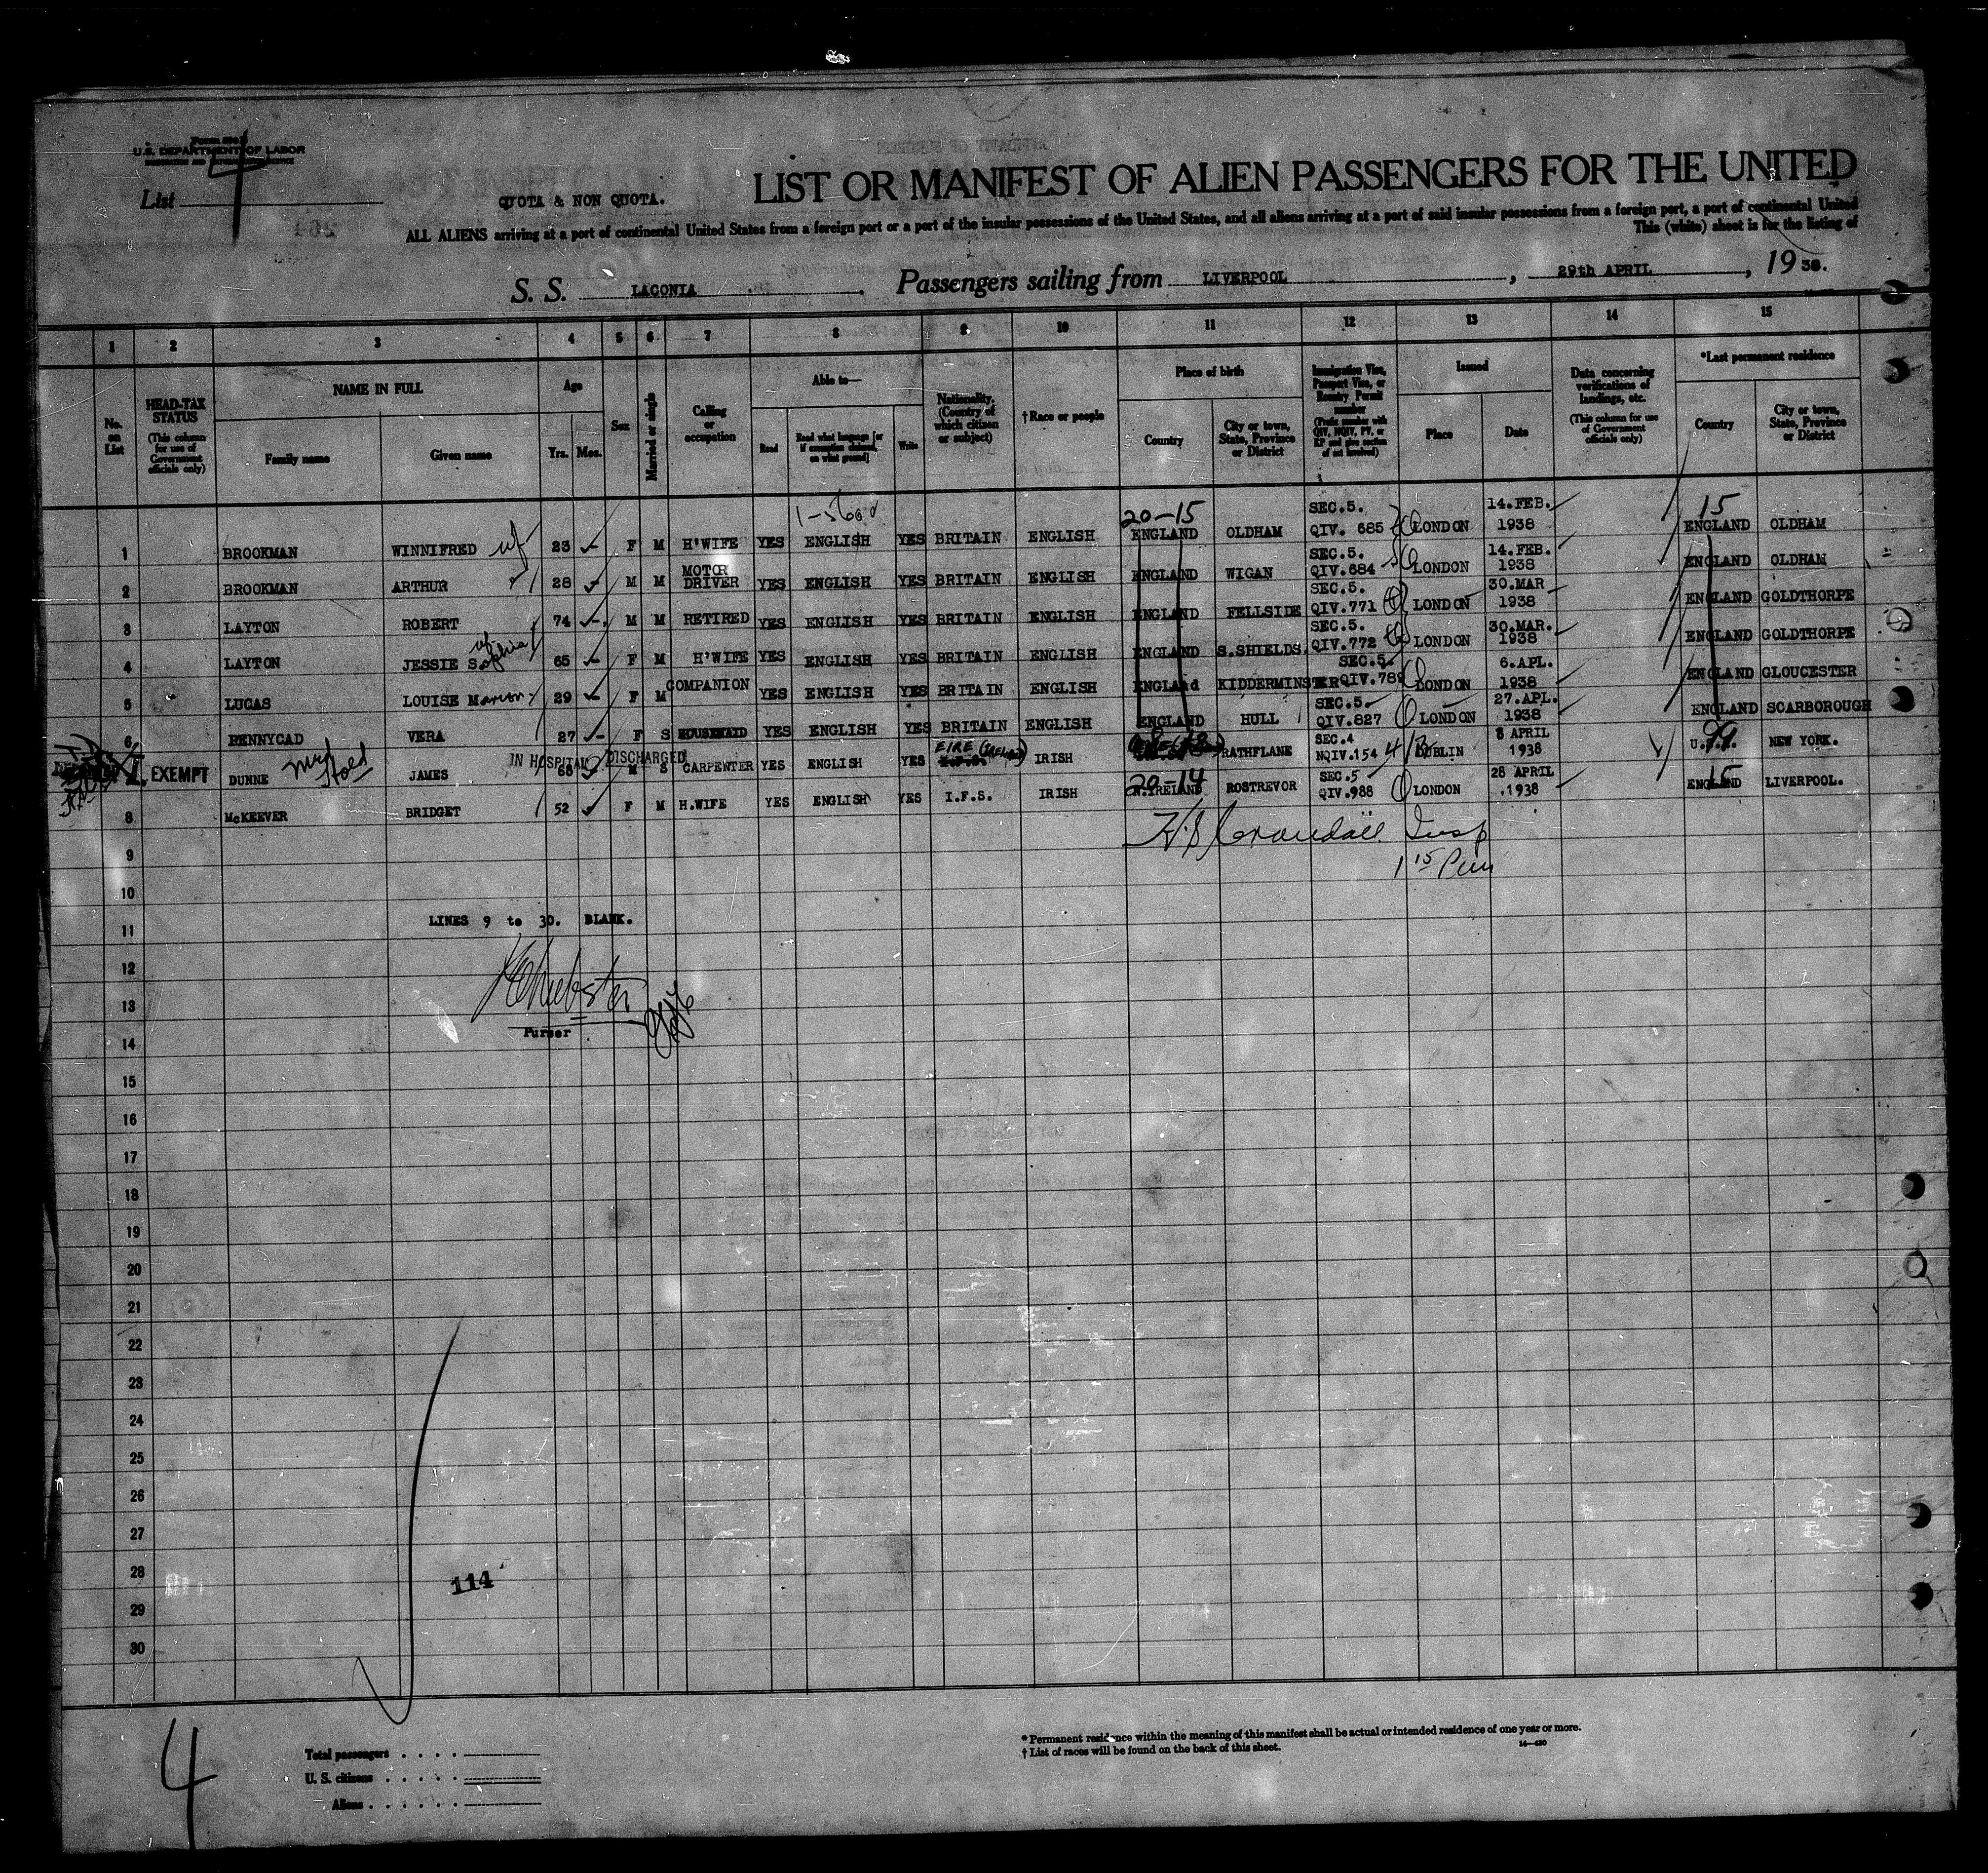 U.S. DEPARTMENT OF LABOR
List 4
QUOTA & NON QUOTA.
LIST OR MANIFEST OF ALIEN PASSENGERS FOR THE UNITED
ALL ALIENS arriving at a port of continental United States from a foreign port or a port of the insular possessions of the United States, and all aliens arriving at a port of said insular possessions from a foreign port, a port of continental United
This (white) sheet is for the listing of
S. S. LACONIA. Passengers sailing from LIVERPOOL, 29th APRIL, 1938.
1 2 3 4 5 6 7 8 9 10 11 12 13 14 15
No. on List
HEAD-TAX STATUS (This column for use of Government officials only)
NAME IN FULL Family name Given name
Age Yrs. Mos.
Sex
Married or single
Calling or occupation
Able to— Read Read what language [or if exemption claimed, on what ground] Write
Nationality. (Country of which citizen or subject)
†Race or people
Place of birth Country City or town, State, Province or District
Immigration Visa, Passport Visa, or Reentry Permit number (Prefix number with QIV, NQIV, PV, or RP and give section of act involved)
Issued Place Date
Data concerning verifications of landings, etc. (This column for use of Government officials only)
*Last permanent residence Country City or town, State, Province or District
20-15 15
1 BROOKMAN WINNIFRED wf 23 F M H'WIFE YES ENGLISH YES BRITAIN ENGLISH ENGLAND OLDHAM SEC.5. QIV. 685 LONDON 14.FEB. 1938 ENGLAND OLDHAM
2 BROOKMAN ARTHUR 28 M M MOTOR DRIVER YES ENGLISH YES BRITAIN ENGLISH ENGLAND WIGAN SEC.5. QIV.684 LONDON 14.FEB. 1938 ENGLAND OLDHAM
3 LAYTON ROBERT 74 M M RETIRED YES ENGLISH YES BRITAIN ENGLISH ENGLAND FELLSIDE SEC.5. QIV.771 LONDON 30.MAR 1938 ENGLAND GOLDTHORPE
4 LAYTON JESSIE Sophia wf 65 F M H'WIFE YES ENGLISH YES BRITAIN ENGLISH ENGLAND S.SHIELDS. SEC.5. QIV.772 LONDON 30.MAR. 1938 ENGLAND GOLDTHORPE
5 LUCAS LOUISE Marion 29 F M COMPANION YES ENGLISH YES BRITAIN ENGLISH ENGLAnd KIDDERMINSTER SEC.5. QIV.789 LONDON 6.APL. 1938 ENGLAND GLOUCESTER
6 PENNYCAD VERA 27 F S HOUSEMAID YES ENGLISH YES BRITAIN ENGLISH ENGLAND HULL SEC.5. QIV.827 LONDON 27.APL. 1938 ENGLAND SCARBOROUGH
IN HOSPITAL DISCHARGED
EXEMPT DUNNE JAMES 65 M S CARPENTER YES ENGLISH YES EIRE (IRELAND) IRISH RATHFLANE SEC.4 NQIV.154 DUBLIN 8 APRIL 1938 U.S.A. 99 NEW YORK.
20-14 15
8 McKEEVER BRIDGET 52 F M H.WIFE YES ENGLISH YES I.F.S. IRISH N.IRELAND ROSTREVOR SEC.5 QIV.988 LONDON 28 APRIL .1938 ENGLAND LIVERPOOL.
Crandall Insp
1 15 Pm
9
10
11 LINES 9 to 30. BLANK.
12
13
Purser
14
15
16
17
18
19
20
21
22
23
24
25
26
27
28 114
29
30
4
Total passengers
U. S. citizens
Aliens
* Permanent residence within the meaning of this manifest shall be actual or intended residence of one year or more.
† List of races will be found on the back of this sheet.
14—430